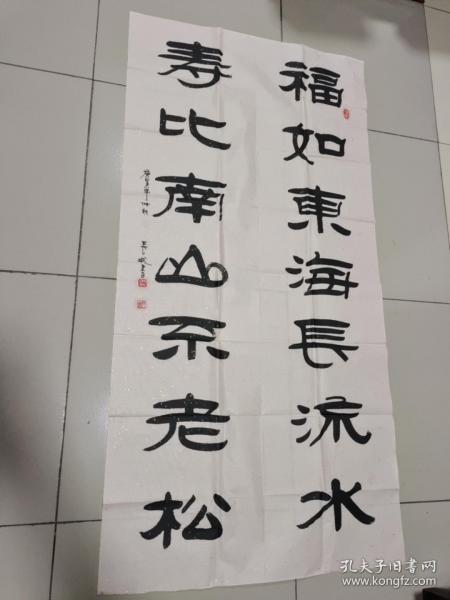 福如東海長流水
寿比南山不老松
孔夫子旧书网
www.kongfz.com